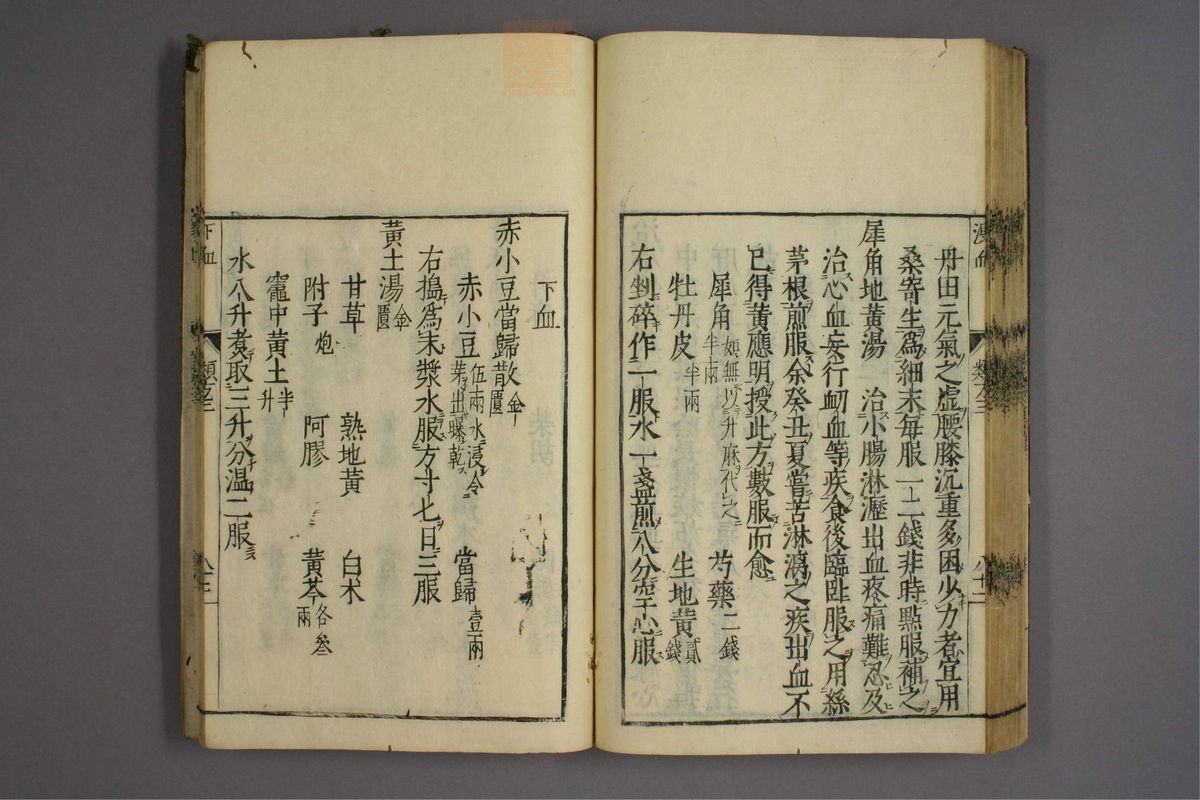 丹田元氣之虛腰膝沉重多困少力者宜用
桑寄生爲細末每服一二錢非時點服補之
犀角地黃湯　治小腸淋瀝出血疼痛難忍及
治心血妄行衂血等疾食後臨臥服之用絲
茅根煎服余癸丑夏嘗苦淋瀝之疾出血不
已得黃應明授此方數服而愈
犀角半兩如無以升麻代之　芍藥二錢
牡丹皮半兩　生地黃貳錢
右剉碎作二服水一盞煎八分空心服
下血
赤小豆當歸散金匱
赤小豆伍兩水浸令芽出曝乾　當歸壹兩
右搗爲末漿水服方寸匕日三服
黃土湯金匱
甘草　熟地黃　白朮
附子炮　阿膠　黃芩各叄兩
竈中黃土半升
水八升煑取三升分溫二服
下血